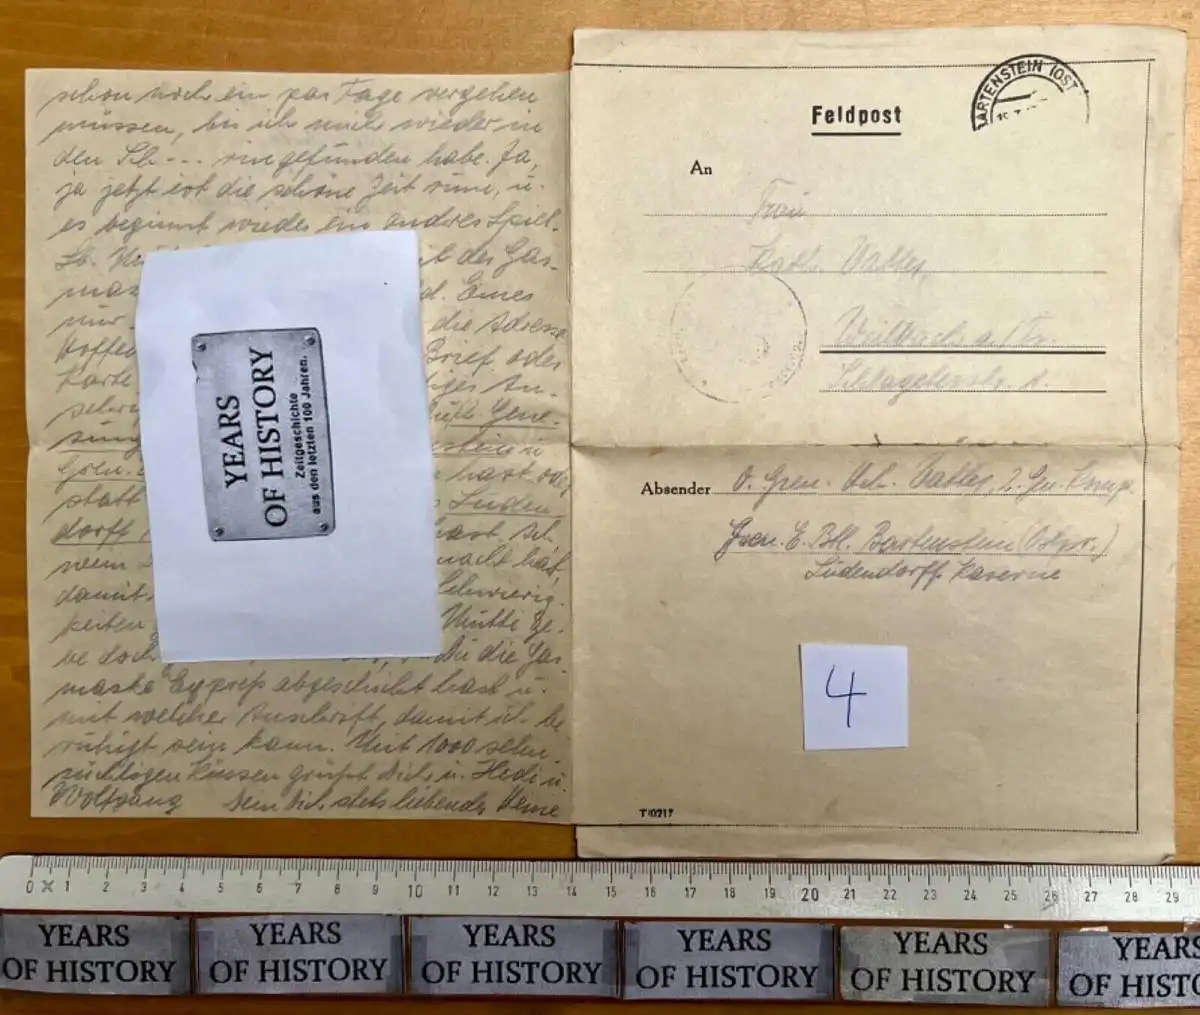 schon noch ein par Tage vergehen
müssen, bis ich mich wieder in
den Sch--- eingefunden habe. Ja,
ja jetzt ist die schöne Zeit rum, u.
es beginnt wieder ein andres Spiel.
Lb. des Gas-
mas Eines
nur die Adresse
Hoffen Brief oder
Karte An-
schri Gene-
sung
Gren. hast oder
statt Luden
dorff hast. Ich
nem macht hast,
damit Schwierig-
keiten Mutti ge-
be doch Du die Gas
maske Expreß abgeschickt hast u.
mit welcher Anschrift, damit ich be
ruhigt sein kann. Mit 1000 sehn
süchtigen Küssen grüßt Dich u. Hedi u.
Wolfgang Dein Dich stets liebender
YEARS
OF HISTORY
Zeitgeschichte
aus den letzten 100 Jahren.
BARTENSTEIN (OST
Feldpost
An
Frau
Kath.
a./
Schlageterstr.
Absender O. Gren. 2. Gen. Komp.
Gren. E. Btl. Bartenstein (Ostpr.)
Ludendorff Kaserne
4
T/0217
0 1 2 3 4 5 6 7 8 9 10 11 12 13 14 15 16 17 18 19 20 21 22 23 24 25 26 27 28 29
YEARS
OF HISTORY
YEARS
OF HISTORY
YEARS
OF HISTORY
YEARS
OF HISTORY
YEARS
OF HISTORY
YEARS
OF HISTO